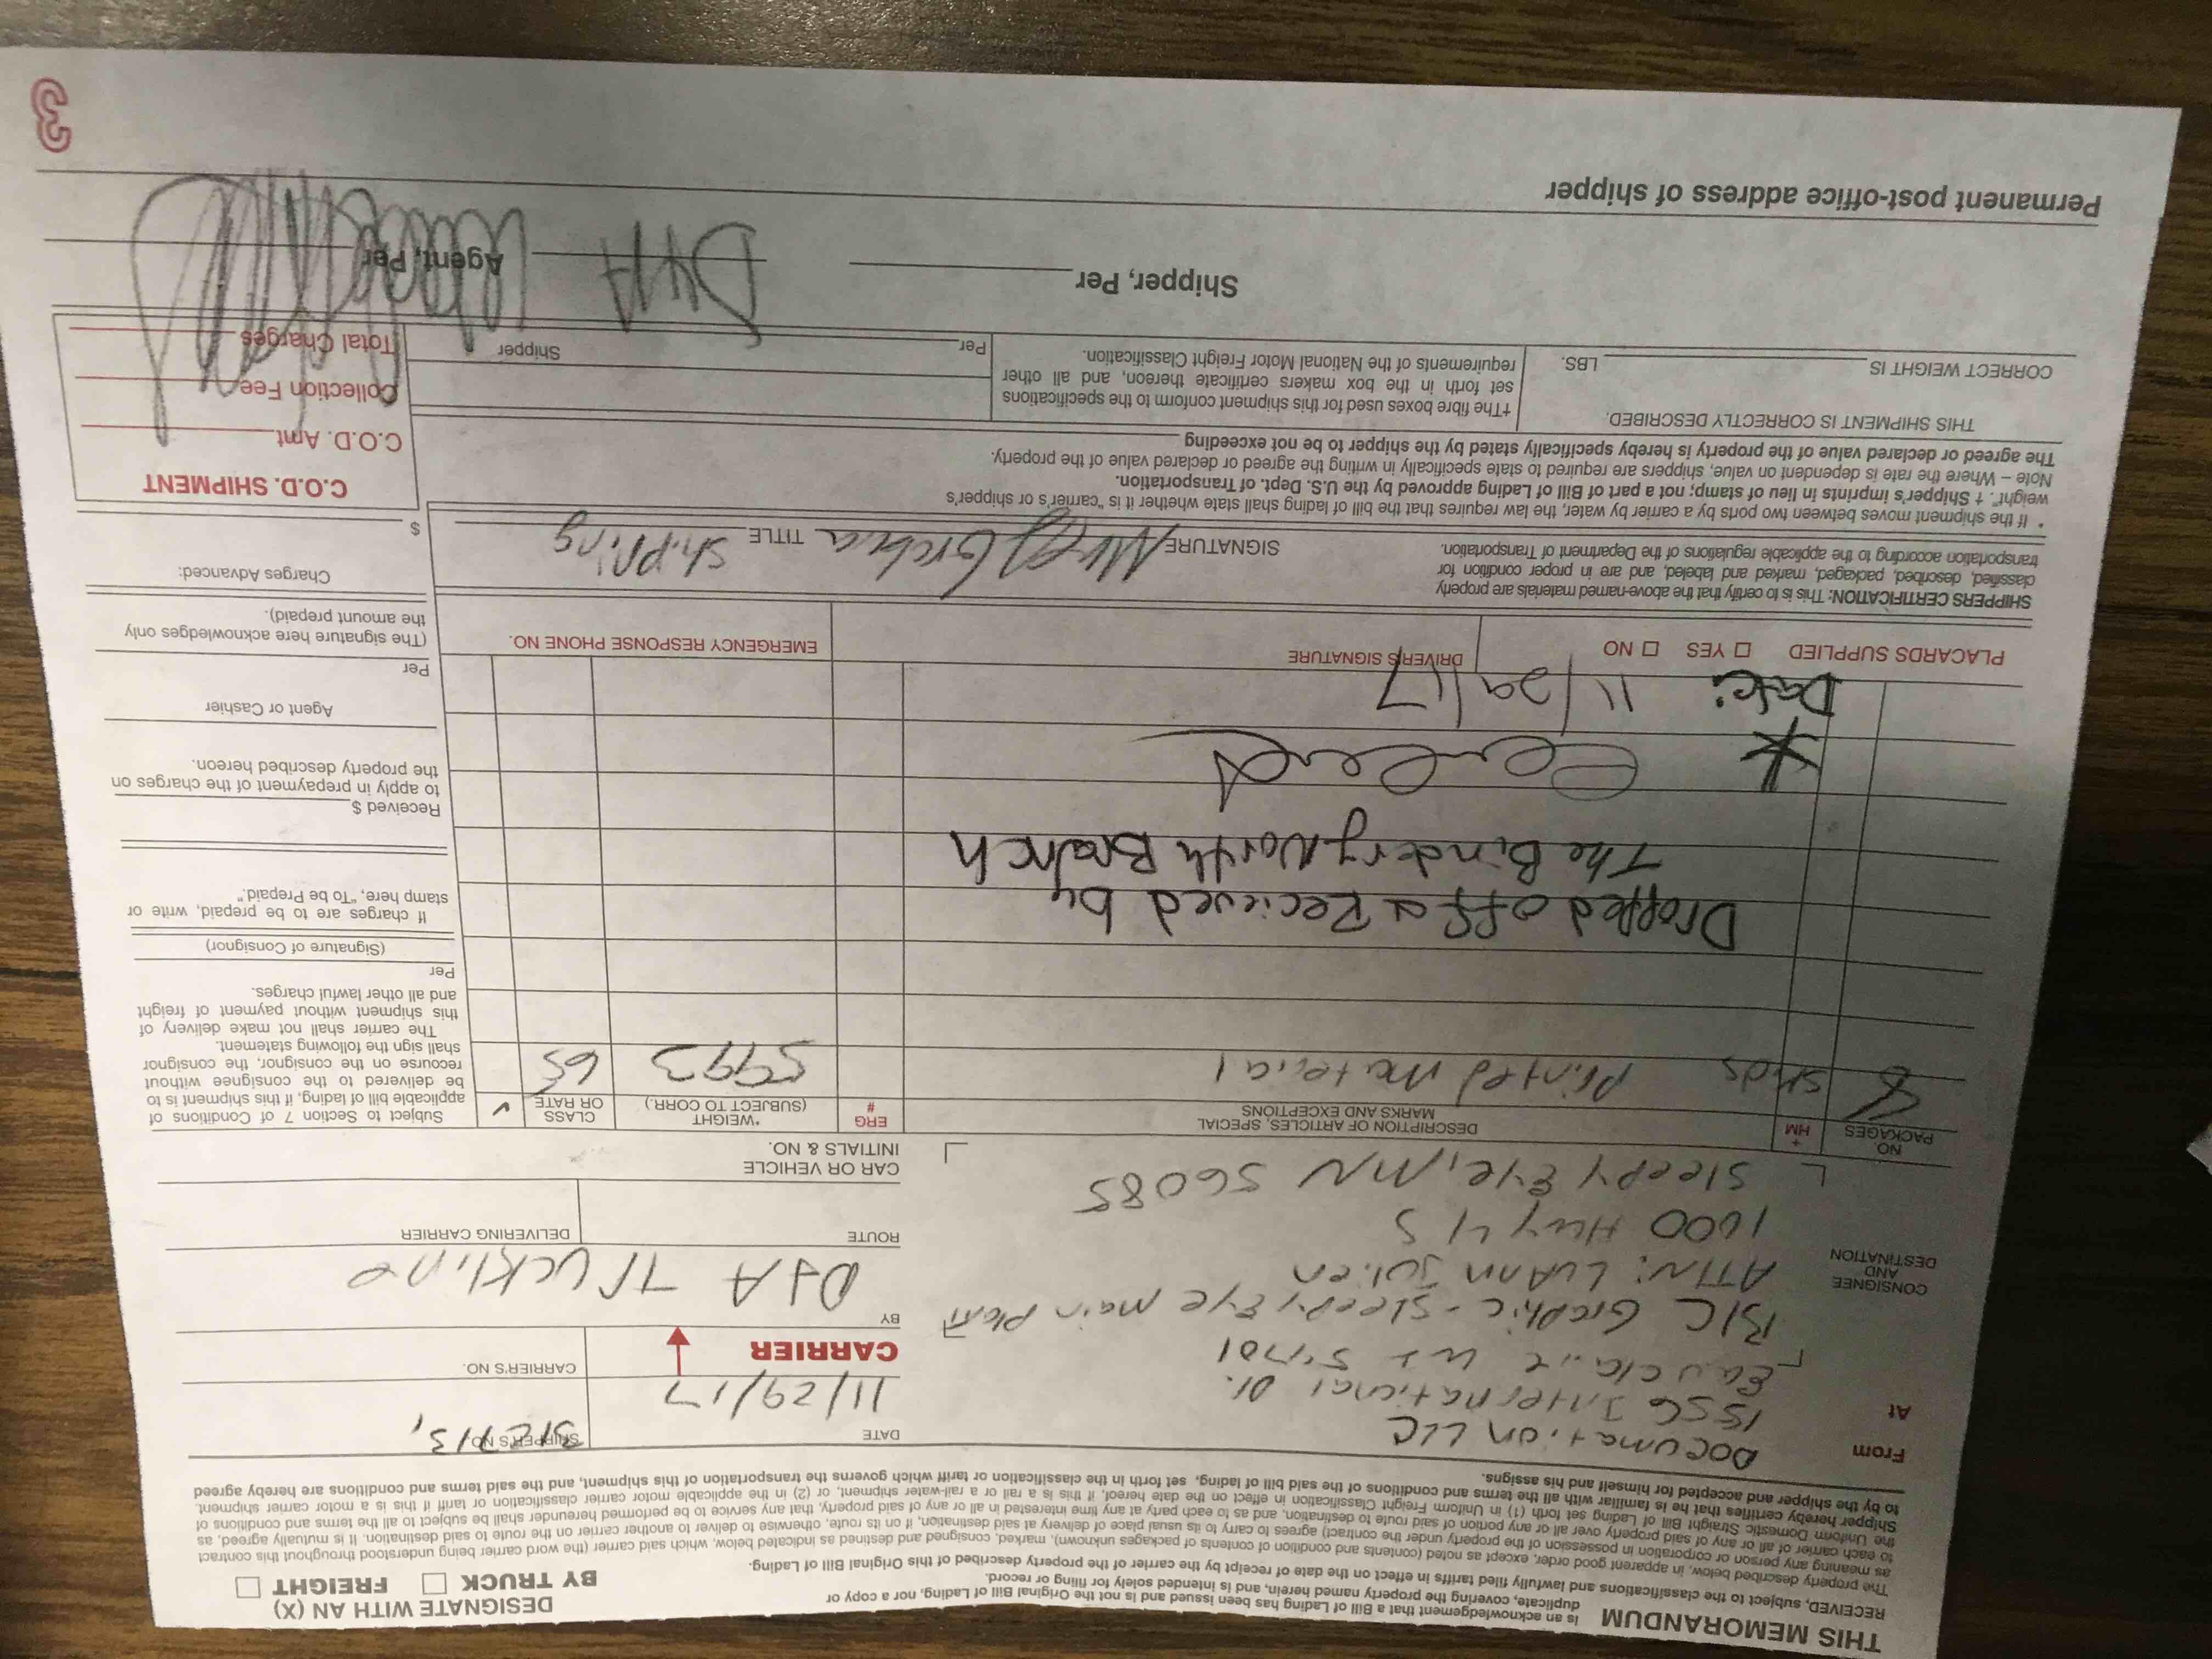 THIS MEMORANDUM
is an acknowledgement that a Bill of Lading has been issued and is not the Original Bill of Lading, nor a copy or
duplicate, covering the property named herein, and is intended solely for filing or record.
DESIGNATE WITH AN (X)
BY TRUCK ☐ FREIGHT ☐
RECEIVED, subject to the classifications and lawfully filed tariffs in effect on the date of receipt by the carrier of the property described of this Original Bill of Lading.
The property described below, in apparent good order, except as noted (contents and condition of contents of packages unknown), marked, consigned and destined as indicated below, which said carrier (the word carrier being understood throughout this contract
as meaning any person or corporation in possession of the property under the contract) agrees to carry to its usual place of delivery at said destination, if on its route, otherwise to deliver to another carrier on the route to said destination. It is mutually agreed, as
to each carrier of all or any of said property over all or any portion of said route to destination, and as to each party at any time interested in all or any of said property, that any service to be performed hereunder shall be subject to all the terms and conditions of
the Uniform Domestic Straight Bill of Lading set forth (1) in Uniform Freight Classification in effect on the date hereof, if this is a rail or a rail-water shipment, or (2) in the applicable motor carrier classification or tariff if this is a motor carrier shipment.
Shipper hereby certifies that he is familiar with all the terms and conditions of the said bill of lading, set forth in the classification or tariff which governs the transportation of this shipment, and the said terms and conditions are hereby agreed
to by the shipper and accepted for himself and his assigns.
From Documation LLC
At 1556 International Dr.
Eau Claire WI 54701
DATE 11/29/17
SHIPPER'S NO.
CARRIER
CARRIER'S NO.
CONSIGNEE
AND
DESTINATION
BIC Graphic - Sleepy Eye Main Plant
ATTN: LuAnn Julien
1000 Hwy 4 S
Sleepy Eye, MN 56085
BY D&A Truckline
ROUTE
DELIVERING CARRIER
CAR OR VEHICLE
INITIALS & NO.
NO.
PACKAGES
+
HM
DESCRIPTION OF ARTICLES, SPECIAL
MARKS AND EXCEPTIONS
ERG
#
*WEIGHT
(SUBJECT TO CORR.)
CLASS
OR RATE
✓
8 skids Printed Material 5993 65
Dropped off & Recieved by
The Bindery North Branch
*
Date: 11/29/17
Subject to Section 7 of Conditions of
applicable bill of lading, if this shipment is to
be delivered to the consignee without
recourse on the consignor, the consignor
shall sign the following statement.
The carrier shall not make delivery of
this shipment without payment of freight
and all other lawful charges.
Per
(Signature of Consignor)
If charges are to be prepaid, write or
stamp here, "To be Prepaid."
Received $
to apply in prepayment of the charges on
the property described hereon.
Agent or Cashier
Per
(The signature here acknowledges only
the amount prepaid).
Charges Advanced:
$
PLACARDS SUPPLIED ☐ YES ☐ NO
DRIVER'S SIGNATURE
EMERGENCY RESPONSE PHONE NO.
SHIPPERS CERTIFICATION: This is to certify that the above-named materials are properly
classified, described, packaged, marked and labeled, and are in proper condition for
transportation according to the applicable regulations of the Department of Transportation.
SIGNATURE
TITLE Shipping
* If the shipment moves between two ports by a carrier by water, the law requires that the bill of lading shall state whether it is "carrier's or shipper's
weight". † Shipper's imprints in lieu of stamp; not a part of Bill of Lading approved by the U.S. Dept. of Transportation.
Note – Where the rate is dependent on value, shippers are required to state specifically in writing the agreed or declared value of the property.
The agreed or declared value of the property is hereby specifically stated by the shipper to be not exceeding
THIS SHIPMENT IS CORRECTLY DESCRIBED.
CORRECT WEIGHT IS LBS.
††The fibre boxes used for this shipment conform to the specifications
set forth in the box makers certificate thereon, and all other
requirements of the National Motor Freight Classification.
Shipper
Per
C.O.D. SHIPMENT
C.O.D. Amt
Collection Fee
Total Charges
Shipper, Per
D&A
Agent, Per
Permanent post-office address of shipper
3